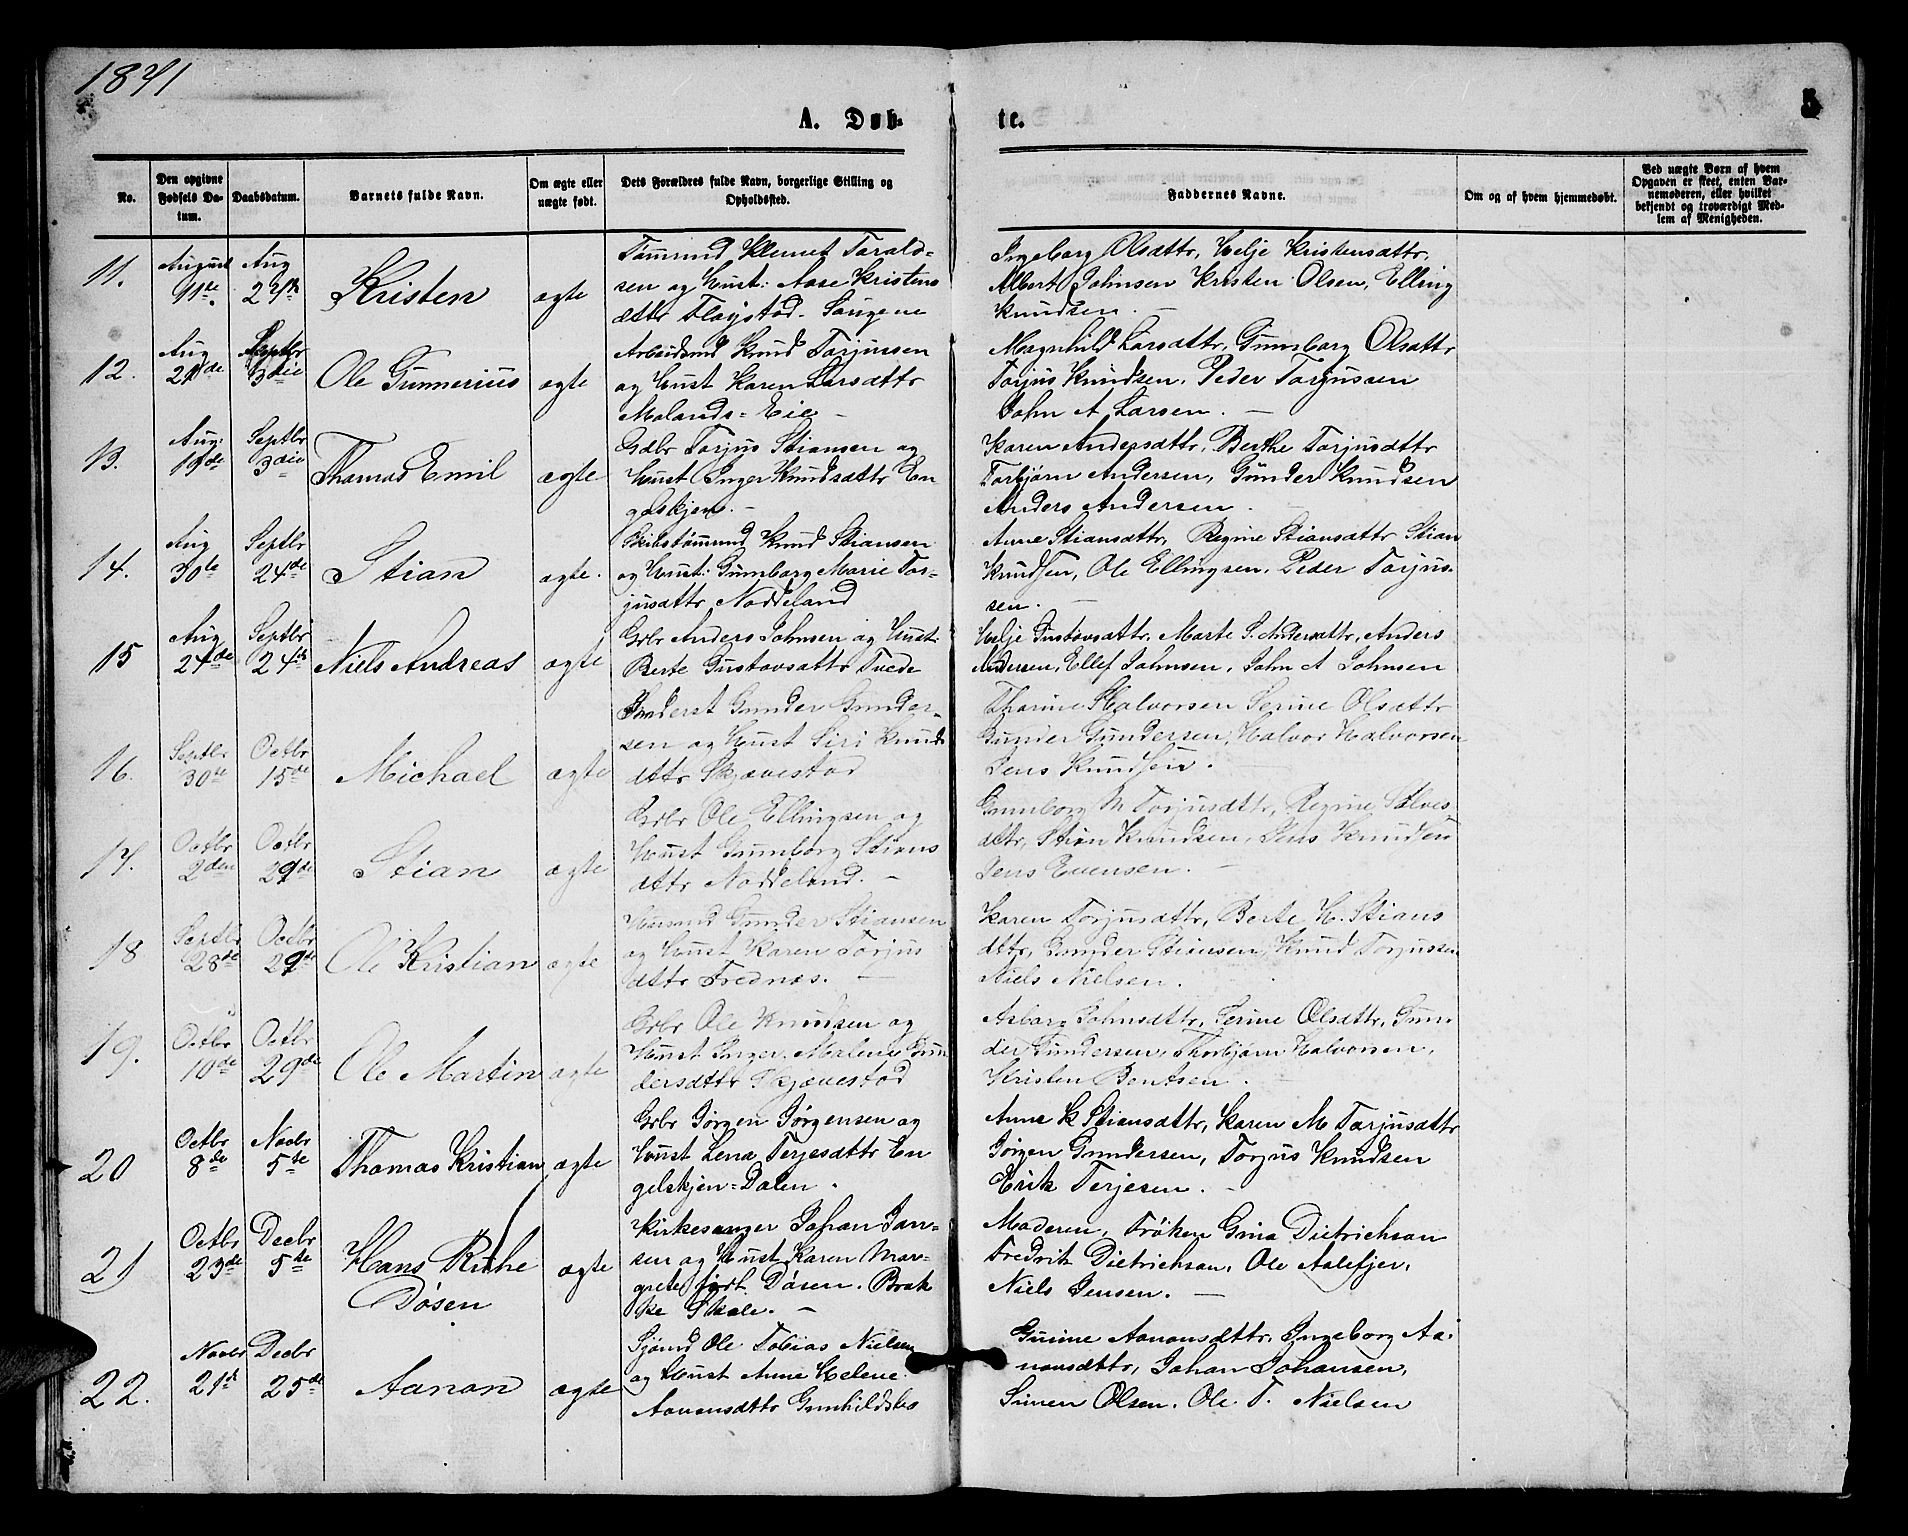 1871
A. Døb-
te.
5
No.
Den opgivne Fødsels Da-tum.
Daabsdatum.
Barnets fulde Navn.
Om ægte eller uægte født.
Dets Forældres fulde Navn, borgerlige Stilling og Opholdssted.
Faddernes Navne.
Om og af hvem hjemmedøbt.
Ved uægte Børn af hvem Opgaven er skeet, enten Barnemoderen, eller hvilket bekjendt og troværdigt Medlem af Menigheden.
11.
August 11te
Aug 27de
Kristen
ægte
Tømmnd Klemet Tarald-
sen og Hust: Aase Kristens
dttr Fløystad. Sougene
Ingeborg Olsdttr, Helje Kristensdttr,
Albert Johnsen Kristen Olsen, Elling
Knudsen. —
12.
Aug 21de
Septbr 3die
Ole Gunnerius
ægte
Arbeidsmd Knud Torjussen
og Hust Karen Larsdttr
Molands-Eie —
Magnhild Larsdttr, Gunborg Olsdttr
Torjus Knudsen. Peder Torjussen
John A Larsen. —
13.
Aug: 19de
Septbr 3die
Thomas Emil
ægte
Gdbr Torjus Stiansen og
Hust Inger Knudsdttr En
gelskjens. —
Karen Andersdttr, Berthe Torjusdttr
Torbjørn Andersen, Gunder Knudsen
Anders Andersen.
14.
Aug 30te
Septbr 24de
Stian
ægte.
Skibstømmnd Knud Stiansen
og Hust: Gunborg Marie Tor-
jusdttr Noddeland
Anne Stiansdttr, Regine Stiansdttr Stian
Knudsen, Ole Ellingsen. Peder Torjus-
sen. —
15
Aug 24de
Septbr 24de
Niels Andreas
ægte
Grbr Anders Johnsen og Hust:
Berte Gustavsdttr Tvede
Helje Gustavsdttr. Marte S. Andersdttr, Anders
Andersen, Ellef Johnsen, John A Johnsen
16.
Septbr 30te
Octbr 15de
Michael
ægte
Inderst Gunder Gunder-
sen og Hust Siri Knuds
dttr Skjævestad
Tharine Halvorsen Serine Olsdttr
Gunder Gundersen, Halvor Halvorsen
Jens Knudsen.
17.
Octbr 2den
Octbr 29de
Stian
ægte
Grbr Ole Ellingsen og
Hust Gunborg Stians
dttr Noddeland. —
Gunborg M Torjusdttr, Regine Salves
dttr, Stian Knudsen, Jens Knudsen
Jens Evensen. —
18
Septbr 28de
Octbr 29de
Ole Kristian
ægte
Husmd Gunder Stiansen
og Hust Karen Torjus
dttr Frednæs. —
Karen Torjusdttr, Berte H. Stians
dttr, Gunder Stiansen, Knud Torjussen
Niels Nielsen.
19.
Octbr 10de
Octbr 29de
Ole Martin
ægte
Grbr Ole Knudsen og
Hust Inger Malene Gun
dersdttr Skjævestad
Asbørg Johnsdttr, Serine Olsdttr, Gun-
der Gundersen, Thorbjørn Halvorsen,
Kristen Bentsen.
20
Octbr 8de
Novbr 5te
Thomas Kristian
ægte
Grbr Jørgen Jørgensen og
Hust Lena Terjesdttr En
gelskjen-Dalen.
Anne K Stiansdttr, Karen M Torjusdttr
Jørgen Gundersen, Torjus Knudsen
Erik Terjesen. —
21
Octbr 23de
Decbr 5te
Hans Riche
Døsen
ægte
Kirkesanger Johan Jan-
sen og Hust Karen Mar-
grete født Døsen. Brek
ke Skole. —
Moderen, Frøken Gina Dietrichson
Fredrik Dietrichson, Ole Aalefjer,
Niels Jensen. —
22.
Novbr 21d
Decbr 25de
Aanon
ægte
Sjømd Ole Tobias Nielsen
og Hust Anne Helene
Aanonsdttr Gunhildsbo
Gurine Aanonsdttr. Ingeborg Aa-
nonsdttr, Johan Johansen,
Simen Olsen. Ole T. Nielsen